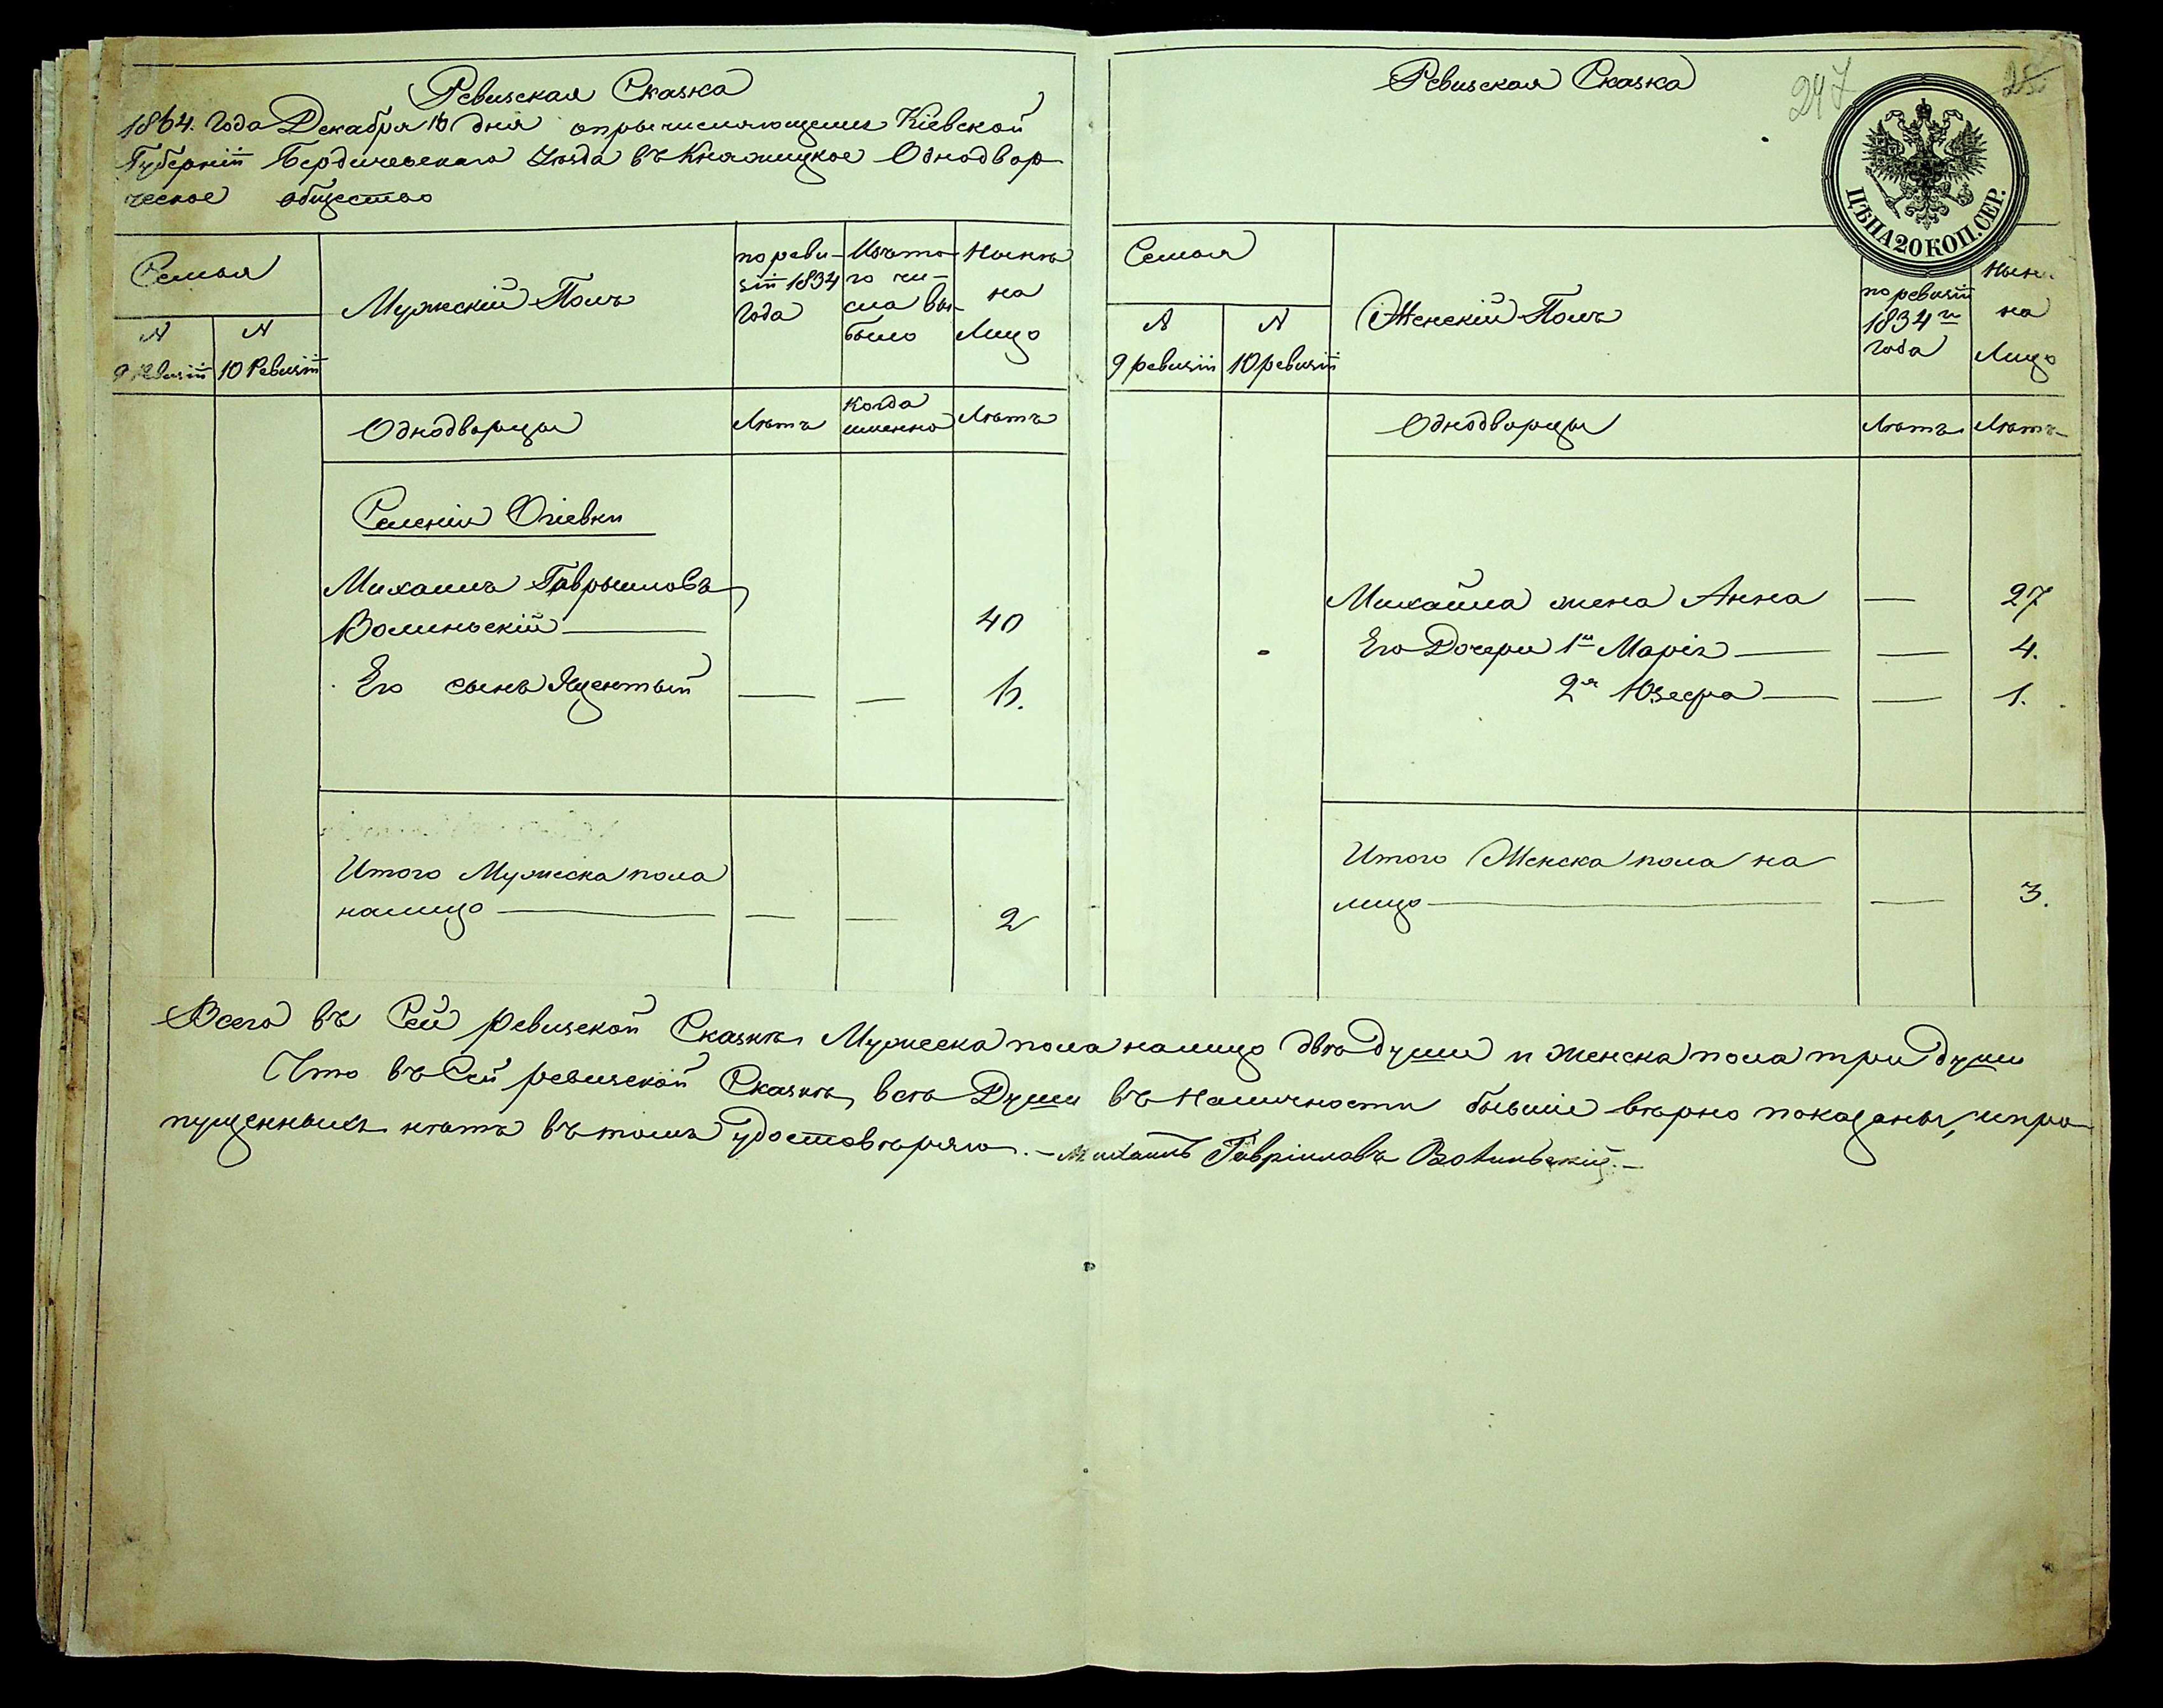 Ревизская Сказка
1864. Года Декабря 10 дня опричисляющемся Кіевской
Губерніи Бердичевскаго Уѣзда въ Княжицкое Однодвор-
ческое общество
Семья
N
9 Ревизіи
N
10 Ревизіи
Мужескій Полъ
по реви-
зіи 1834
Года
Изъ то-
го чи-
сла вы-
было
Нынѣ
на
Лицо
Однодворцы
Лѣтъ
когда
именно
Лѣтъ
Селенія Огіевки
Михаилъ Гаврыиловъ
Волиньскій
40
Его сынъ Яцентый
— —
Итого Мужеска пола
налицо — — 2
Ревизская Сказка
247
25
ЦѢНА 20 КОП. СЕР.
Семья
N
9 ревизіи
N
10 ревизіи
Женскій Полъ
по ревизіи
1834 го
года
Нынѣ
на
Лицо
Однодворцы
Лѣтъ
Лѣтъ
Михайла жена Анна — 27
Его Дочери 1я Марія — 4.
2я Юзефа — 1.
Итого Женска пола на
лицо — 3.
Всего въ Сей ревизской Сказкѣ Мужеска пола налицо двѣ души и женска пола три души
Что въ Сей ревизской Сказкѣ, всѣ Души въ Наличности бывшіе вѣрно показаны, и про-
пущенныхъ нѣтъ въ томъ удостовѣряю. — Михаилъ Гавріиловъ Волиньскій. —